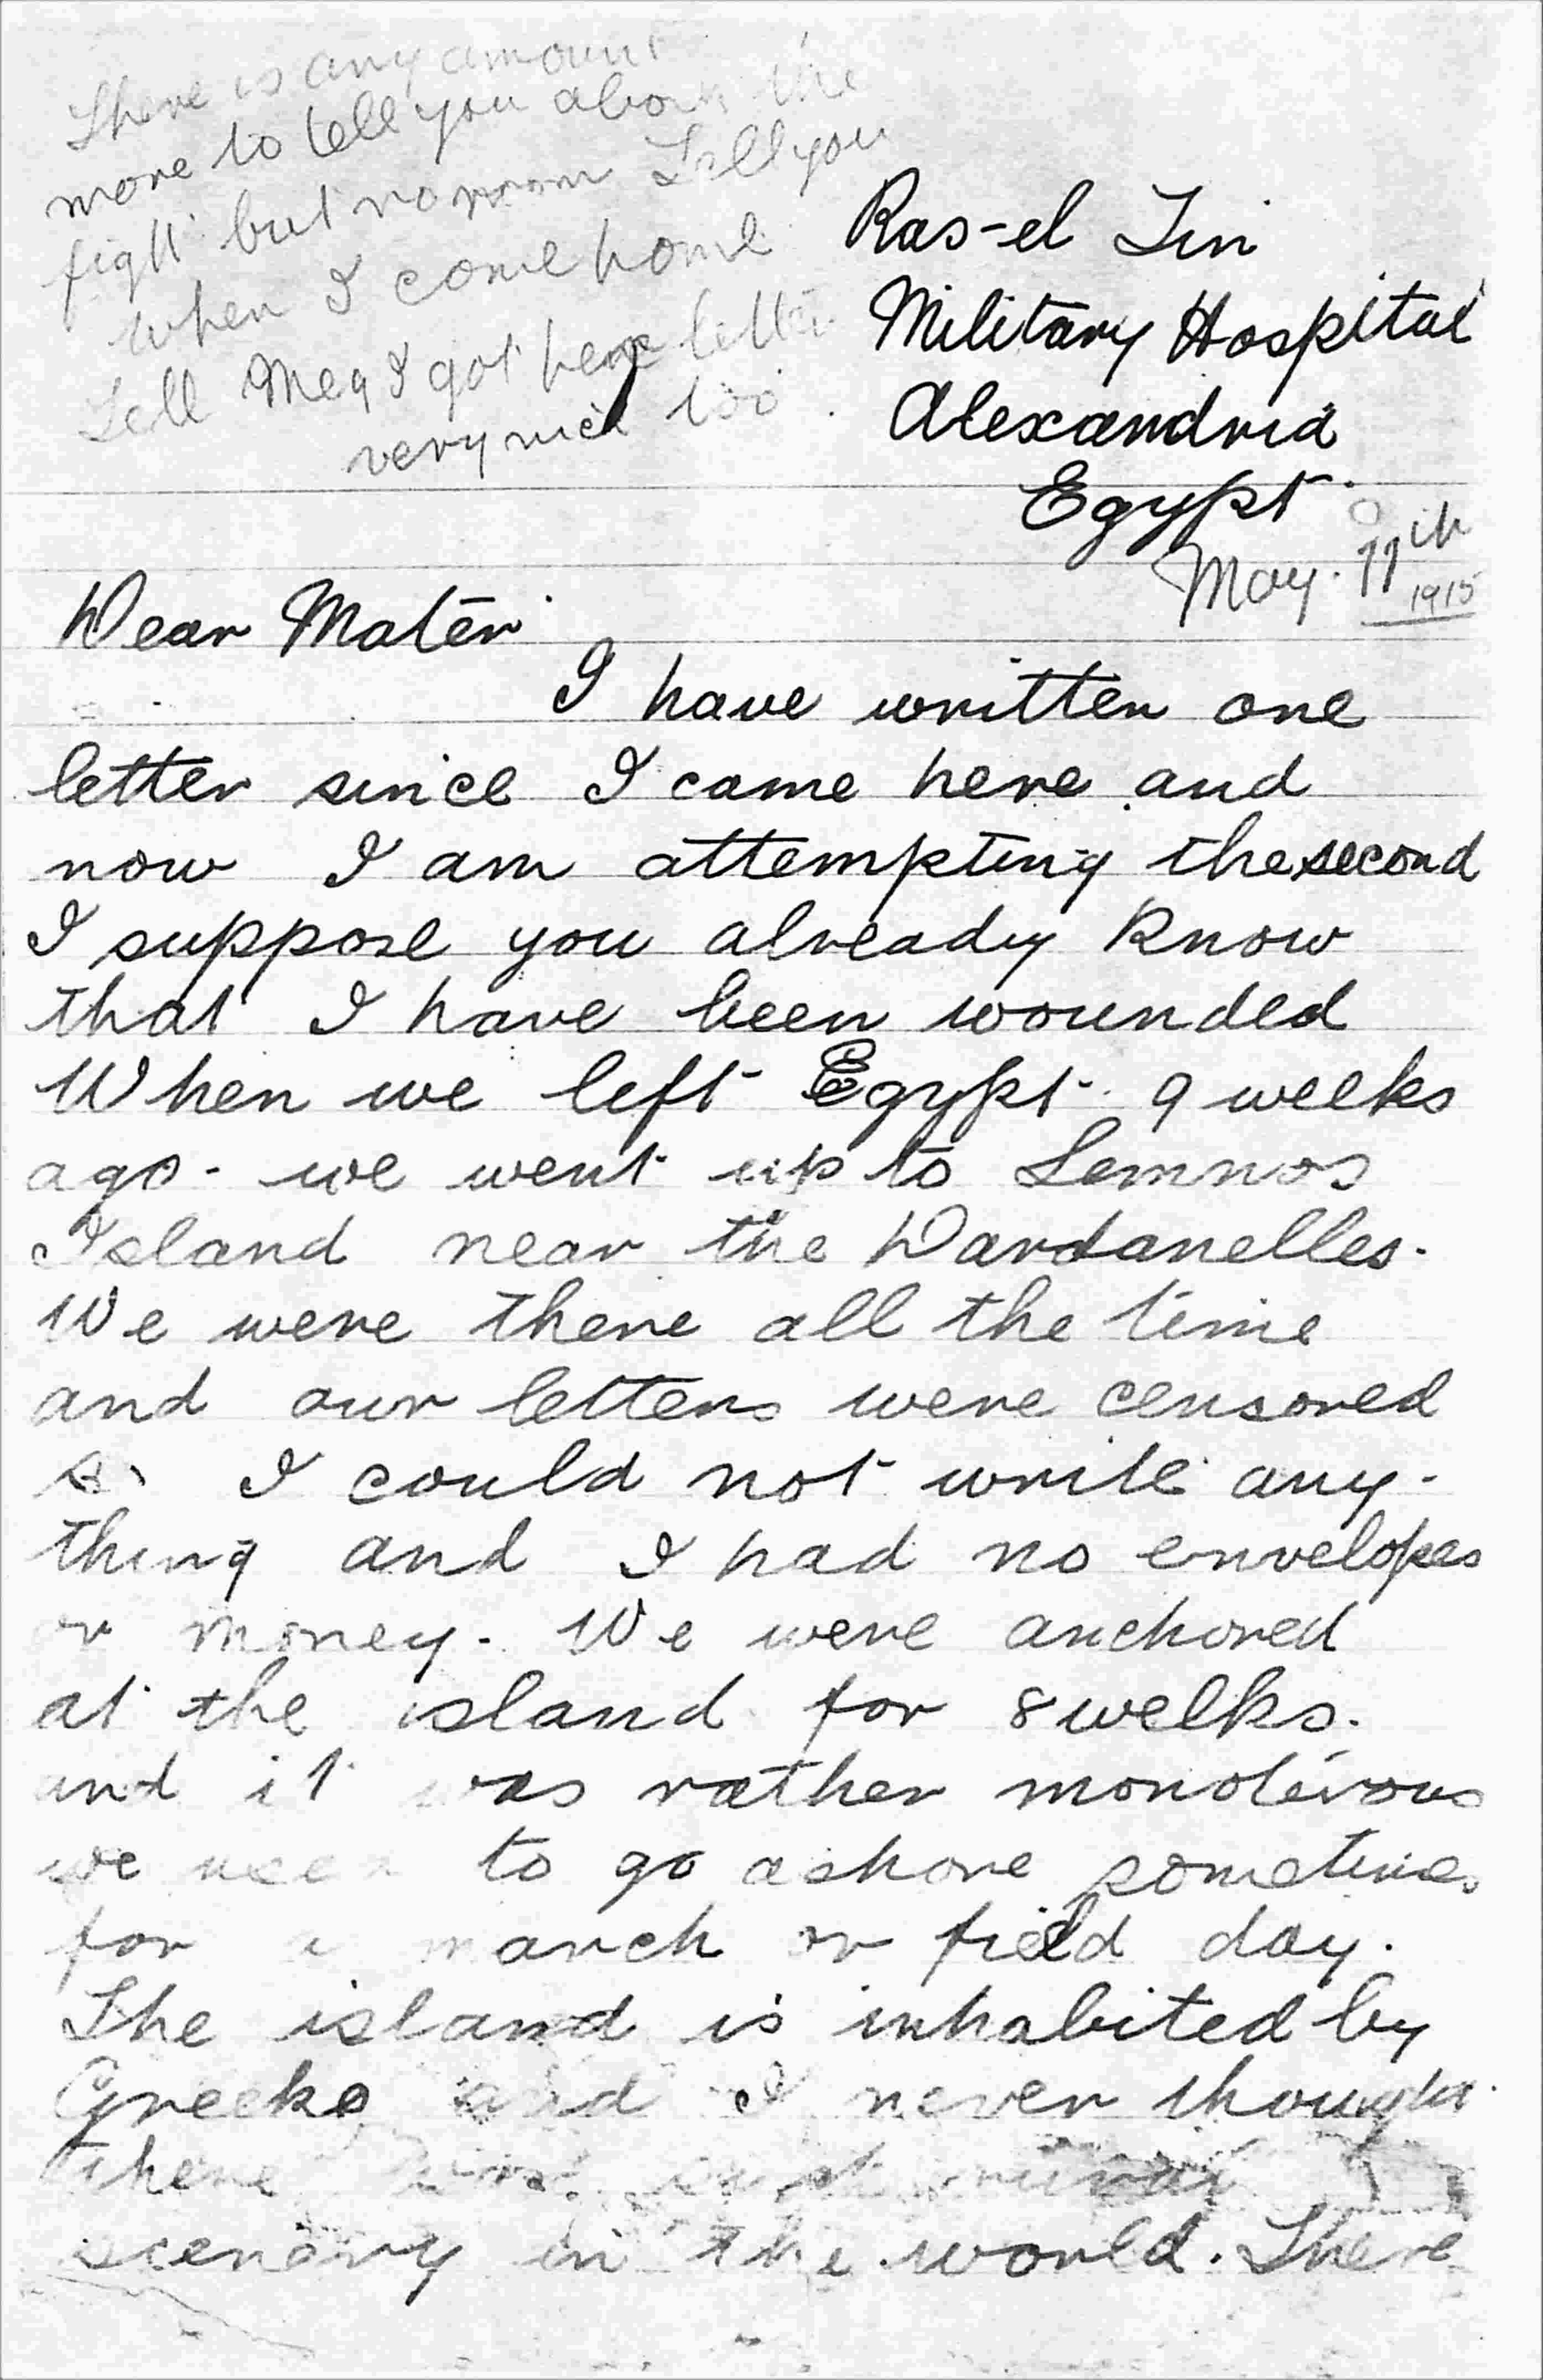 There is any amount
more to tell you about the
fight but no room Tell you
when I come home
Tell Meg I got her letter
very nice too
Ras-el Tin
Military Hospital
Alexandria
Egypt.
May. 11th
1915
Dear Mater
I have written one
letter since I came here and
now I am attempting the second
I suppose you already know
that I have been wounded
When we left Egypt 9 weeks
ago - we went up to Lemnos
Island near the Dardanelles.
We were there all the time
and our letters were censored
so I could not write any-
thing and I had no envelopes
or money. We were anchored
at the island for 8 weeks.
and it was rather monotonous
we used to go ashore sometimes
for a march or field day.
The island is inhabited by
Greeks and I never thought
there was such
scenery in the world. There